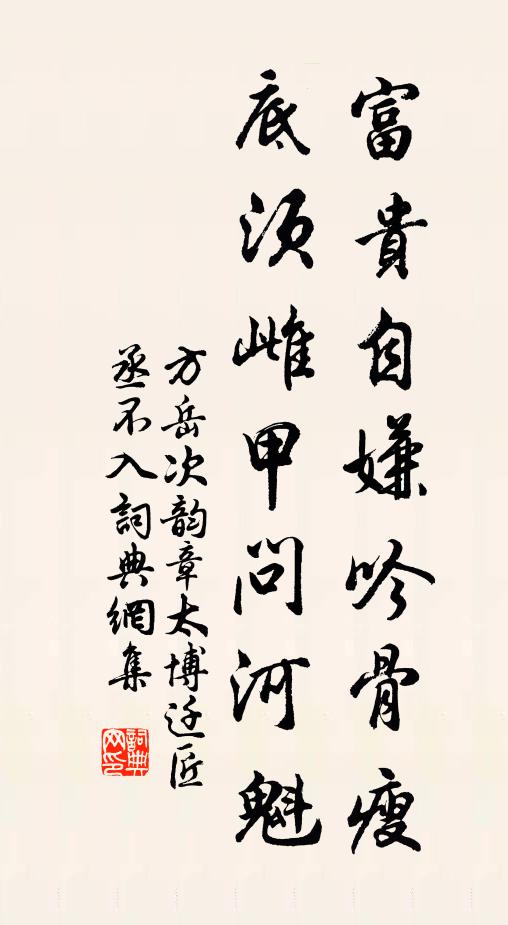 富貴自嫌吟骨瘦
底須雌甲問河魁
方岳次韵章太博迁匠
丞不入詞典網集
詞典网印